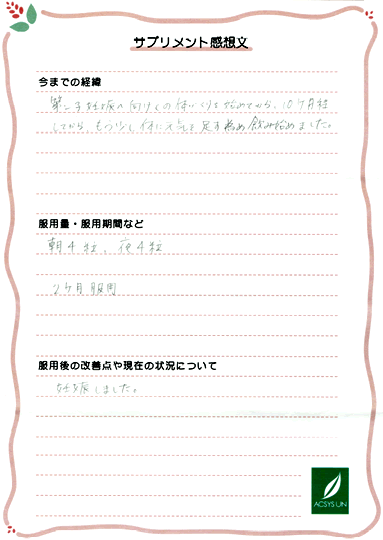 サプリメント感想文
今までの経緯
第二子妊娠へ向けての体づくりを始めてから、10ヶ月経
してから、もう少し体に元気を足す為飲み始めました。
服用量・服用期間など
朝4粒、夜4粒
2ヶ月服用
服用後の改善点や現在の状況について
妊娠しました。
ACSYS UN